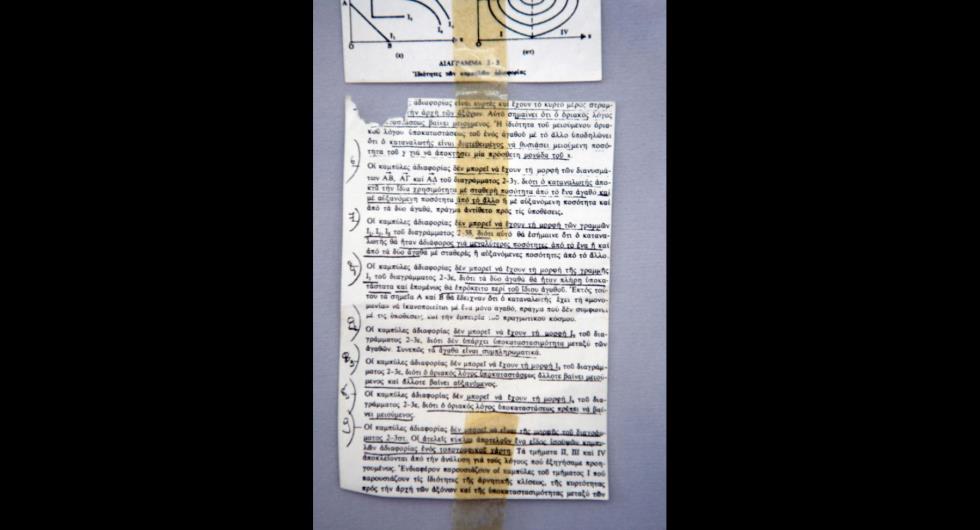 A
I₁
I₂
x
O
B
(ε)
I
IV
x
(στ)
ΔΙΑΓΡΑΜΜΑ 2-3
Ἰδιότητες τῶν καμπυλῶν ἀδιαφορίας
ἀδιαφορίας εἶναι κυρτές καί ἔχουν τό κυρτό μέρος στραμ-
τήν ἀρχή τῶν ἀξόνων. Αὐτό σημαίνει ὅτι ὁ ὁριακός λόγος
βαίνει μειούμενος. Ἡ ἰδιότητα τοῦ μειούμενου ὁρια-
κοῦ λόγου ὑποκαταστάσεως τοῦ ἑνός ἀγαθοῦ μέ τό ἄλλο ὑποδηλώνει
ὅτι ὁ καταναλωτής εἶναι διατεθειμένος νά θυσιάσει μειούμενη ποσό-
τητα τοῦ y γιά νά ἀποκτήσει μία πρόσθετη μονάδα τοῦ x.
Οἱ καμπύλες ἀδιαφορίας δέν μπορεῖ νά ἔχουν τή μορφή τῶν διανυσμά-
των ΑΒ, ΑΓ καί ΑΔ τοῦ διαγράμματος 2-3γ, διότι ὁ καταναλωτής ἀπο-
κτᾶ τήν ἴδια χρησιμότητα μέ σταθερή ποσότητα ἀπό τό ἕνα ἀγαθό καί
μέ αὐξανόμενη ποσότητα ἀπό τό ἄλλο ἤ μέ αὐξανόμενη ποσότητα καί
ἀπό τά δύο ἀγαθά, πράγμα ἀντίθετο πρός τίς ὑποθέσεις.
Οἱ καμπύλες ἀδιαφορίας δέν μπορεῖ νά ἔχουν τή μορφή τῶν γραμμῶν
I₁, I₂, I₃ τοῦ διαγράμματος 2-3δ, διότι αὐτό θά ἐσήμαινε ὅτι ὁ κατανα-
λωτής θά ἦταν ἀδιάφορος γιά μεγαλύτερες ποσότητες ἀπό τό ἕνα ἤ καί
ἀπό τά δύο ἀγαθά μέ σταθερές ἤ αὐξανόμενες ποσότητες ἀπό τό ἄλλο.
Οἱ καμπύλες ἀδιαφορίας δέν μπορεῖ νά ἔχουν τή μορφή τῆς γραμμῆς
I₁ τοῦ διαγράμματος 2-3ε, διότι τά δύο ἀγαθά θά ἦταν πλήρη ὑποκα-
τάστατα καί ἑπομένως θά ἐπρόκειτο περί τοῦ ἴδιου ἀγαθοῦ. Ἐκτός τού-
του τά σημεῖα Α καί Β θά ἔδειχναν ὅτι ὁ καταναλωτής ἔχει τή «μονο-
μανία» νά ἱκανοποιεῖται μέ ἕνα μόνο ἀγαθό, πράγμα πού δέν συμφωνεῖ
μέ τίς ὑποθέσεις καί τήν ἐμπειρία τοῦ πραγματικοῦ κόσμου.
Οἱ καμπύλες ἀδιαφορίας δέν μπορεῖ νά ἔχουν τή μορφή I₂ τοῦ δια-
γράμματος 2-3ε, διότι δέν ὑπάρχει ὑποκαταστασιμότητα μεταξύ τῶν
ἀγαθῶν. Συνεπῶς τά ἀγαθά εἶναι συμπληρωματικά.
Οἱ καμπύλες ἀδιαφορίας δέν μπορεῖ νά ἔχουν τή μορφή I₃ τοῦ διαγράμ-
ματος 2-3ε, διότι ὁ ὁριακός λόγος ὑποκαταστάσεως ἄλλοτε βαίνει μειού-
μενος καί ἄλλοτε βαίνει αὐξανόμενος.
Οἱ καμπύλες ἀδιαφορίας δέν μπορεῖ νά ἔχουν τή μορφή I₄ τοῦ δια-
γράμματος 2-3ε, διότι ὁ ὁριακός λόγος ὑποκαταστάσεως πρέπει νά βαί-
νει μειούμενος.
Οἱ καμπύλες ἀδιαφορίας δέν μπορεῖ νά εἶναι τῆς μορφῆς τοῦ διαγράμ-
ματος 2-3στ. Οἱ ἀτελεῖς κύκλοι ἀποτελοῦν ἕνα εἶδος ἰσοϋψῶν καμπυ-
λῶν ἀδιαφορίας ἑνός τοπογραφικοῦ χάρτη. Τά τμήματα II, III καί IV
ἀποκλείονται ἀπό τήν ἀνάλυση γιά τούς λόγους πού ἐξηγήσαμε προη-
γουμένως. Ἐνδιαφέρον παρουσιάζουν οἱ καμπύλες τοῦ τμήματος I πού
παρουσιάζουν τίς ἰδιότητες τῆς ἀρνητικῆς κλίσεως, τῆς κυρτότητας
πρός τήν ἀρχή τῶν ἀξόνων καί τῆς ὑποκαταστασιμότητας μεταξύ τῶν